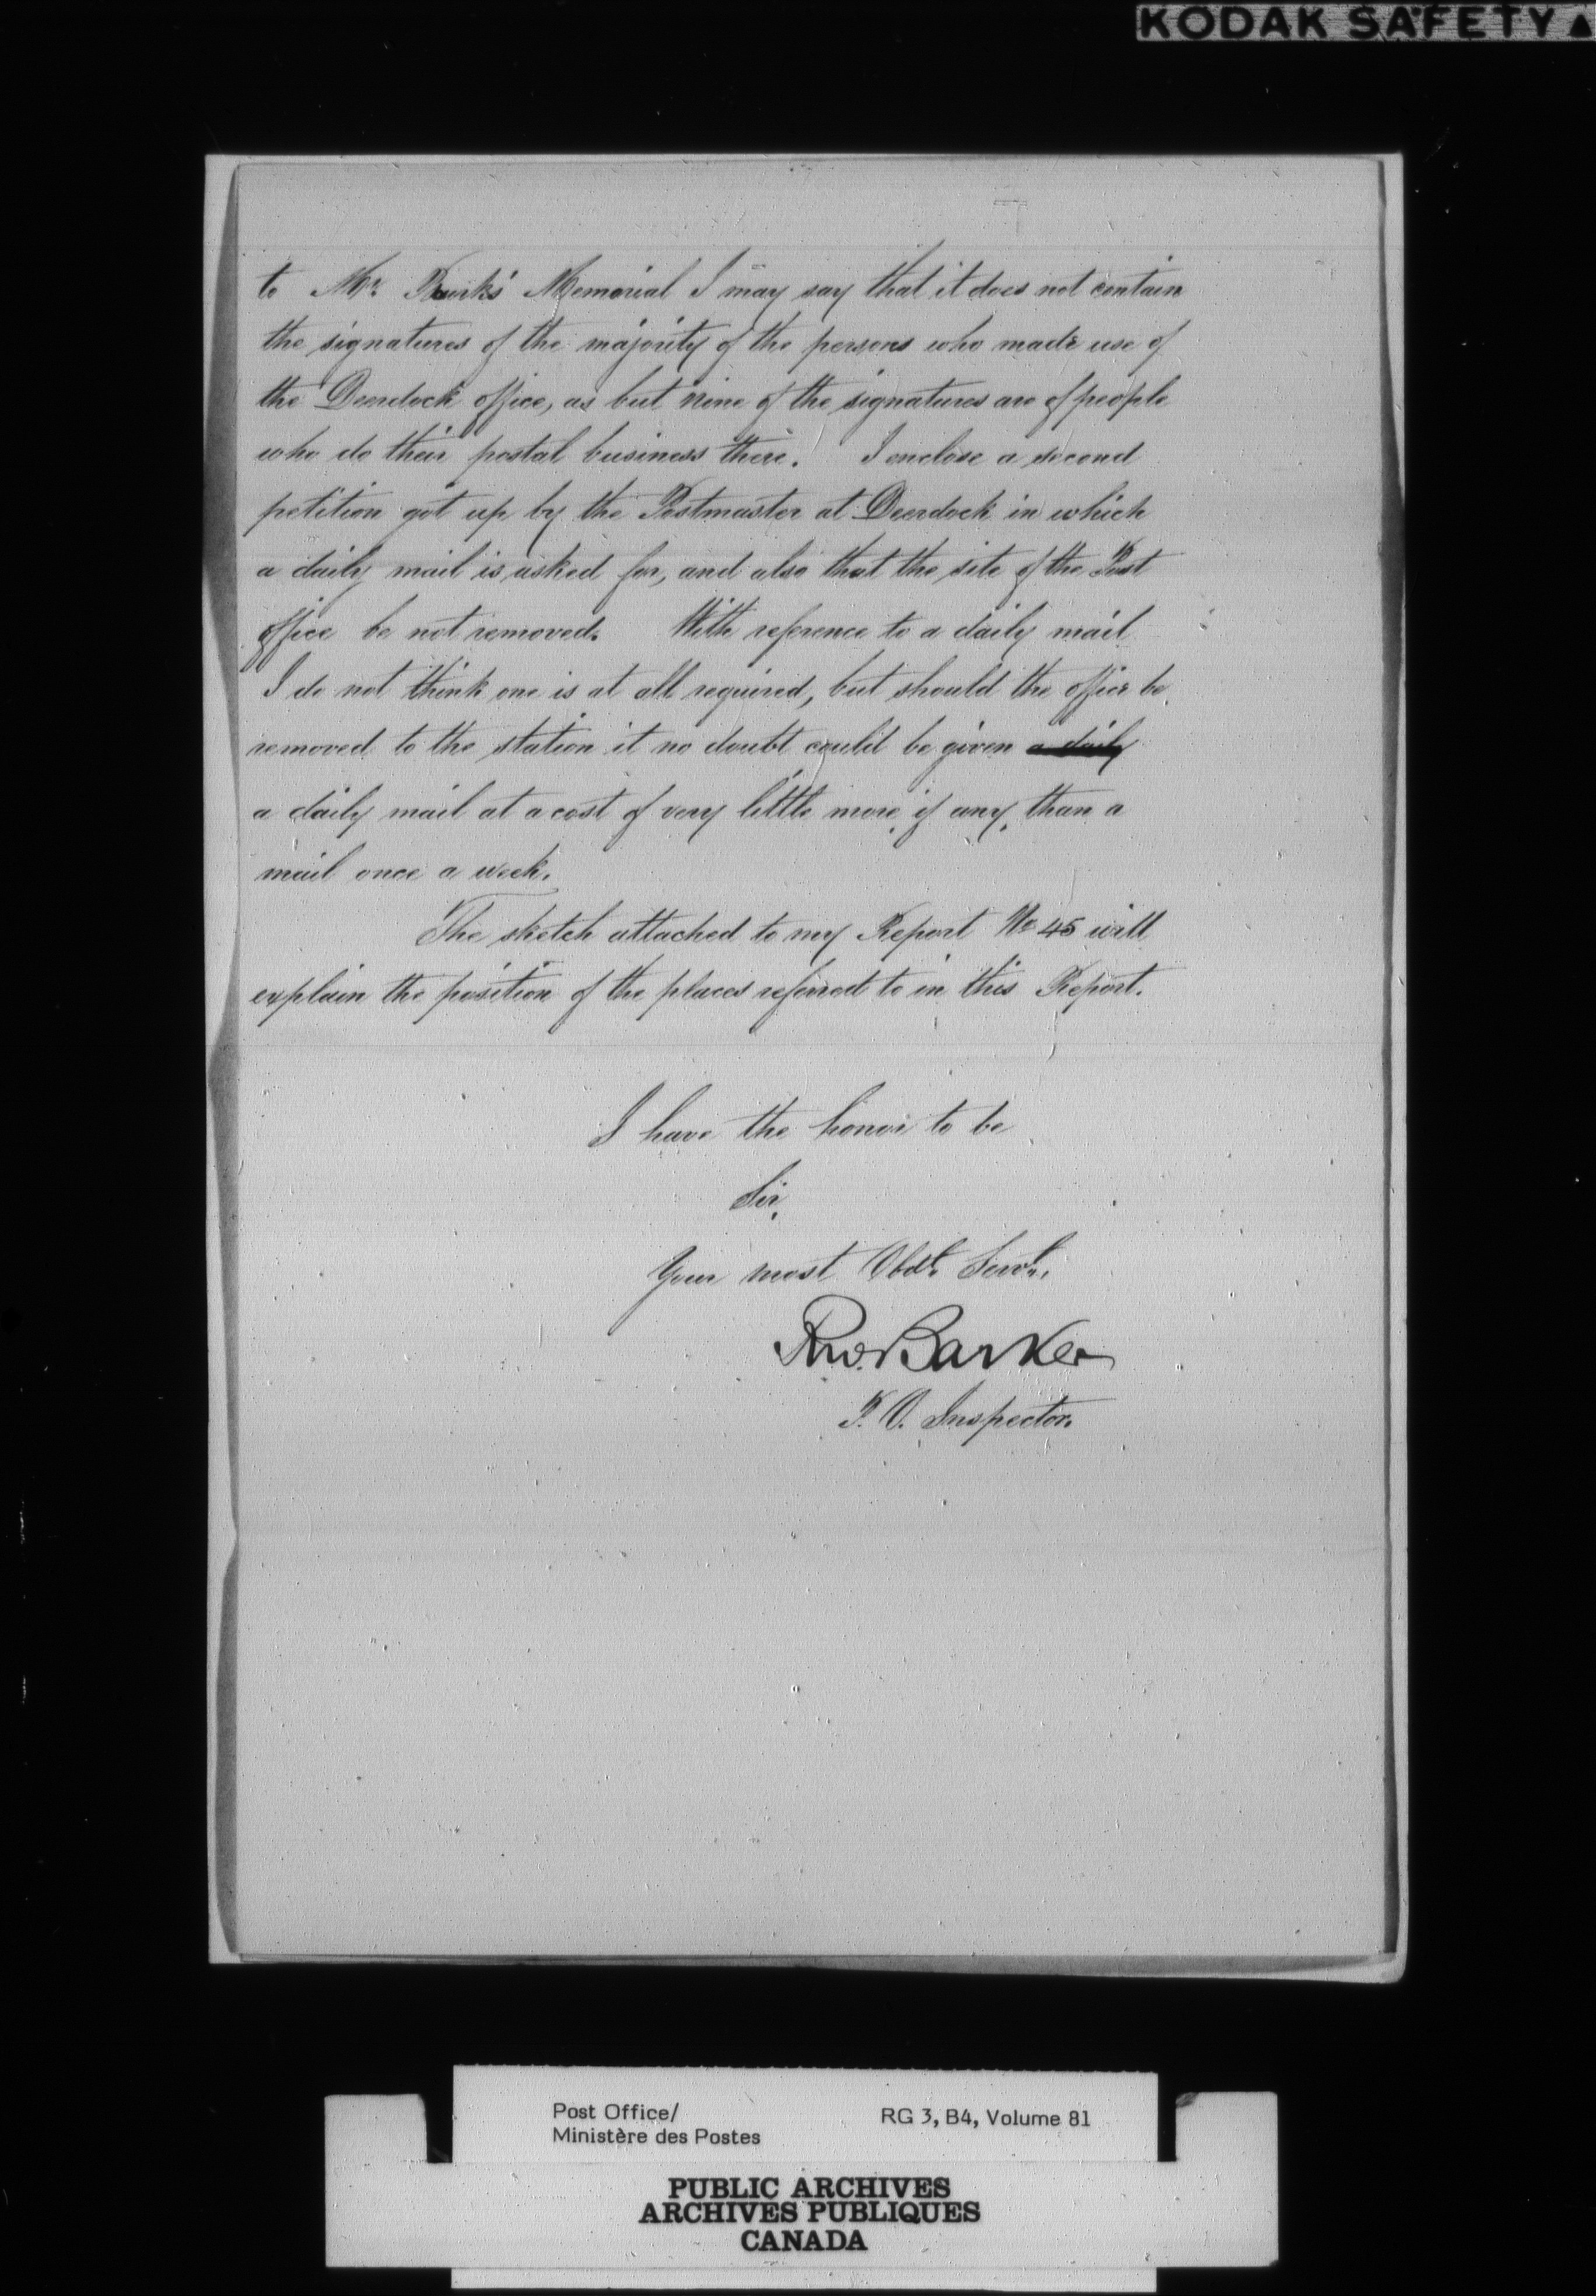 KODAK SAFETY ▲
to Mr. Memorial I may say that it does not contain
the signatures of the majority of the persons who made use of
the Deerdock office, as but nine of the signatures are of people
who do their postal business there. I enclose a second
petition got up by the Postmaster at Deerdock in which
a daily mail is asked for, and also that the site of the Post
office be not removed. With reference to a daily mail
I do not think one is at all required, but should the office be
removed to the station it no doubt could be given a daily
a daily mail at a cost of very little more, if any, than a
mail once a week.
The sketch attached to my Report No 45 will
explain the position of the places referred to in this Report.
I have the honor to be
Sir,
Your most Obdt. Servt.,
Barker
P. O. Inspector.
Post Office/
Ministère des Postes
RG 3, B4, Volume 81
PUBLIC ARCHIVES
ARCHIVES PUBLIQUES
CANADA